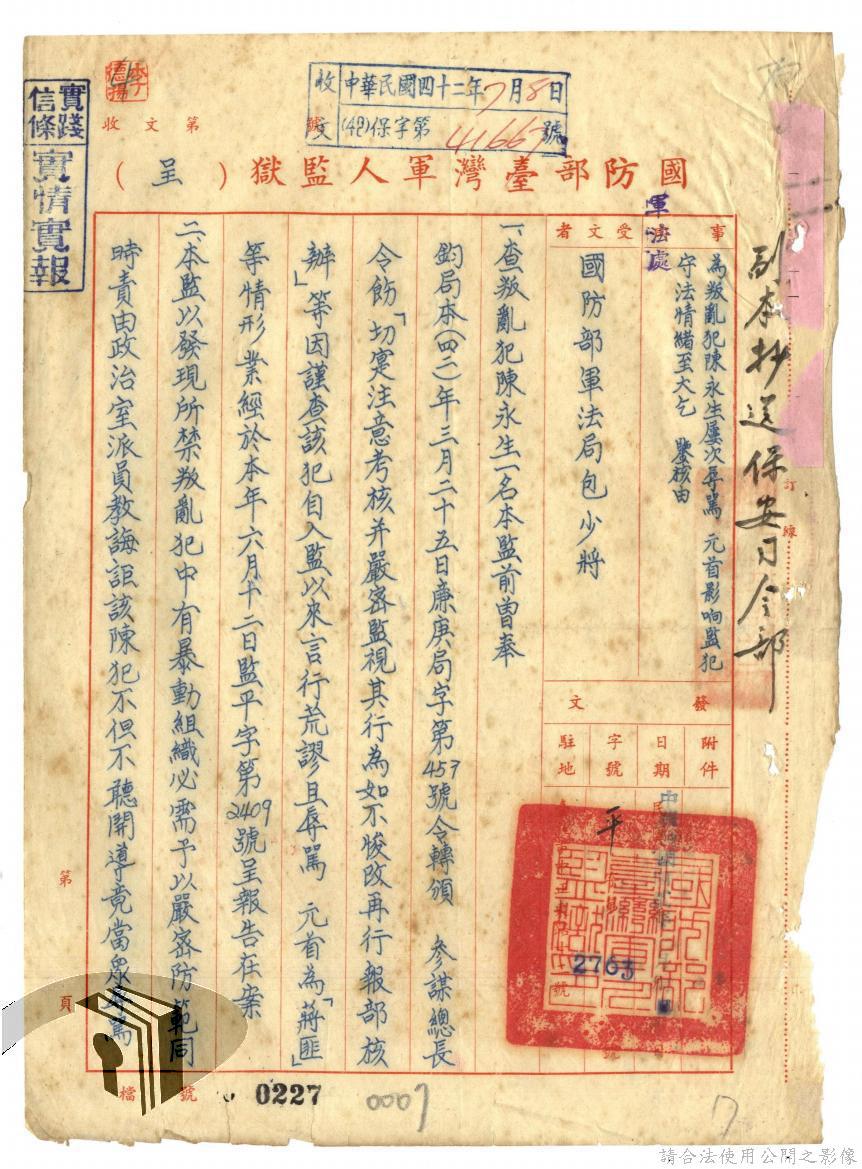 李德揚
收文 中華民國四十二年7月8日
(42)保字第41667號
收文第 號
實踐信條
實情實報
國防部臺灣軍人監獄(呈)
副本抄送保安司令部
訂線
軍法處
事
為叛亂犯陳永生屢次辱罵 元首影响監犯
守法情緒至大乞 鑒核由
受文者
國防部軍法局包少將
發文
附件
日期
字號
駐地
平
2763
號
一、查叛亂犯陳永生一名本監前曾奉
鈞局本(四二)年三月二十五日廉庚局字第457號令轉頒 參謀總長
令飭「切寔注意考核并嚴密監視其行為如不悛改再行報部核
辦」等因謹查該犯自入監以來言行荒謬且辱罵 元首為「蔣匪」
等情形業經於本年六月十二日監平字第2409號呈報告在案
二、本監以發現所禁叛亂犯中有暴動組織必需予以嚴密防範同
時責由政治室派員教誨詎該陳犯不但不聽開導竟當眾辱罵
第
頁
檔 號
0227
0007
7
請合法使用公開之影像